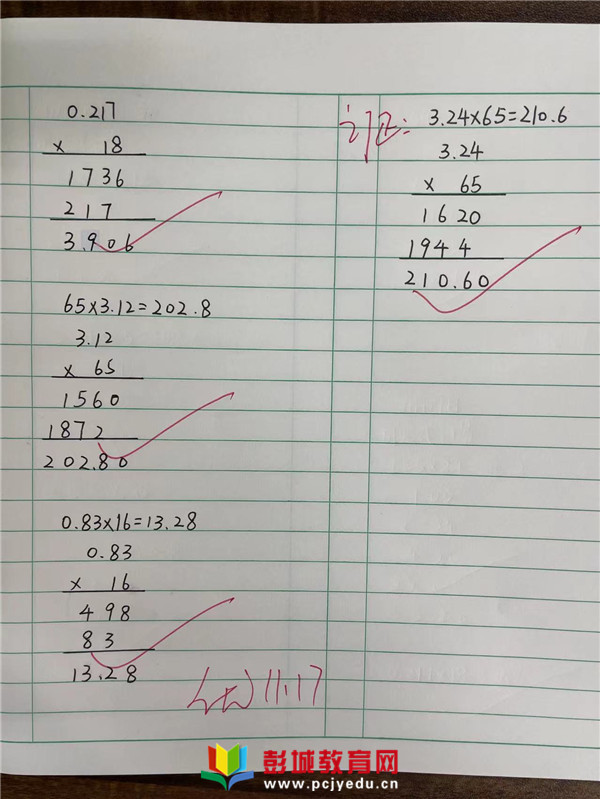 0.217
× 18
1736
217
3.906
65×3.12=202.8
3.12
× 65
1560
1872
202.80
0.83×16=13.28
0.83
× 16
498
83
13.28
订正: 3.24×65=210.6
3.24
× 65
1620
1944
210.60
11.17
彭城教育网
www.pcjyedu.cn